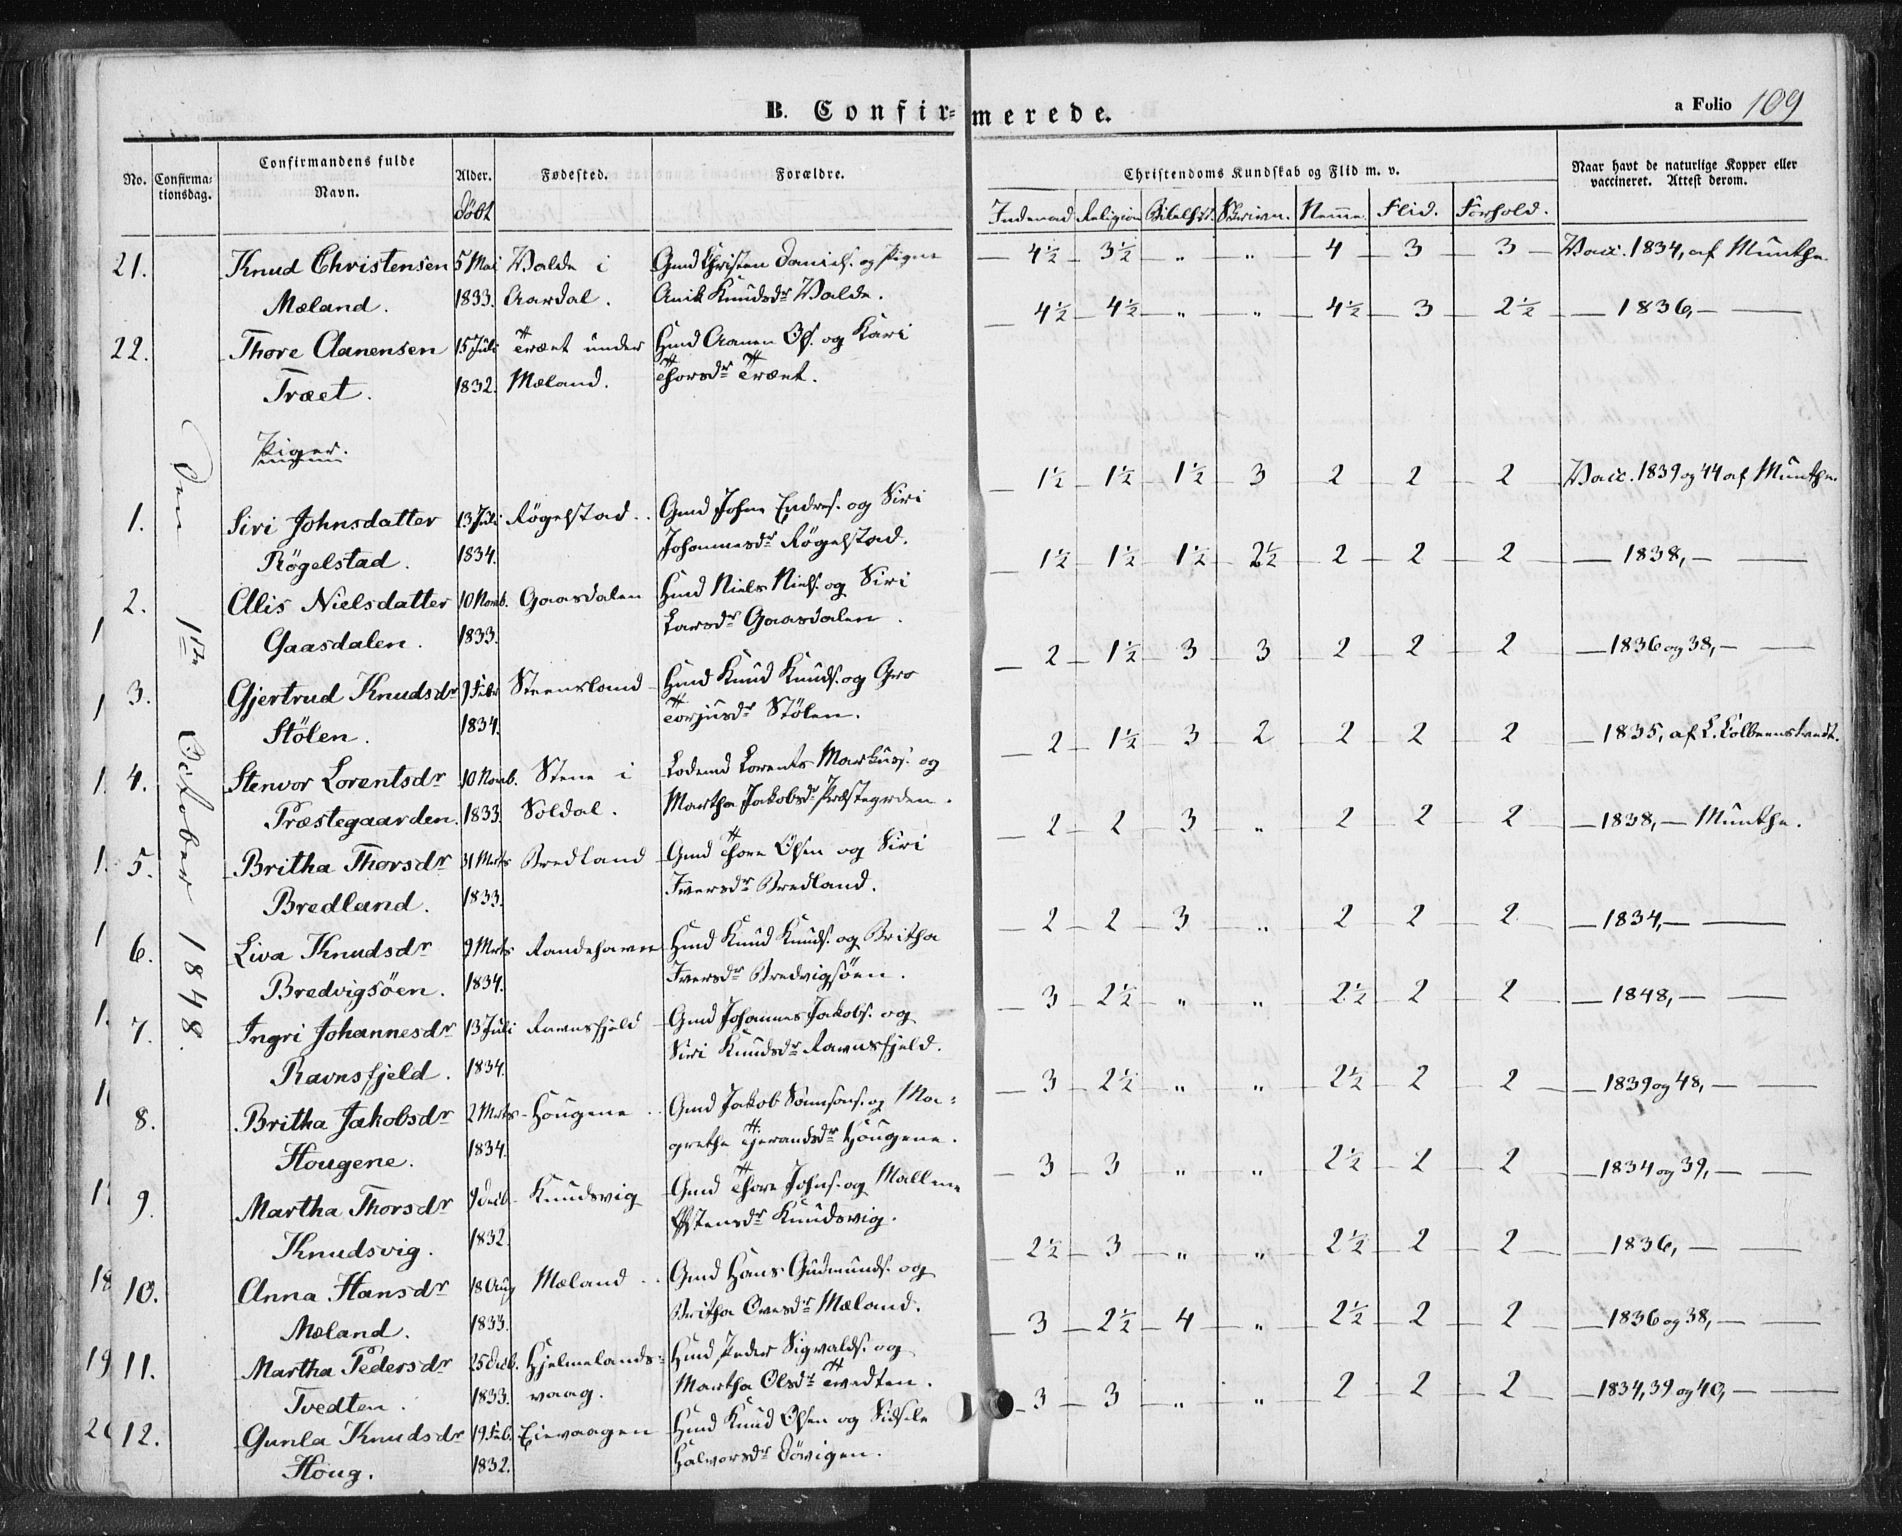 B. Confirmerede.
a Folio 109
No.
Confirmationsdag.
Confirmandens fulde Navn.
Alder. döbt
Fødested.
Forældre.
Christendoms Kundskab og Flid m. v.
Naar havt de naturlige Kopper eller vaccineret. Attest derom.
Indenad Religion Bibelhist. Skrivn. Nemme. Flid. Forhold.
Den 1ste October 1848.
21. Knud Christensen 5 Mai Walde i Gmd Christen Daniels. og Pigen — 4½ — 3½ — „ — „ — 4 — 3 — 3 — Vacc. 1834, af Munthe.
Mæland. 1833. Aardal. Anik Knudsdr Walde.
22. Thore Aanensen 15 Juli Træet under Hmd Aanen Ols. og Kari — 4½ — 4½ — „ — „ — 4½ — 3 — 2½ — 1836, —
Træet. 1832. Mæland. Thorsdr Træet.
Piger.
1. Siri Johnsdatter 13 Juli Røgelstad. Gmd John Endres. og Siri — 1½ — 1½ — 1½ — 3 — 2 — 2 — 2 Vacc. 1839 og 44 af Munthe.
Rögelstad. 1834. Johannesdr Røgelstad.
2. Alis Nielsdatter 10 Novb. Gaasdalen Hmd Niels Niels. og Siri — 1½ — 1½ — 1½ — 2½ — 2 — 2 — 2 — 1838, —
Gaasdalen. 1833. Larsdr Gaasdalen.
3. Gjertrud Knudsdr 9 Febr Steensland Hmd Knud Knuds. og Gro — 2 — 1½ — 3 — 3 — 2 — 2 — 2 — 1836 og 38, —
Stölen. 1834. Torjusdr Stølen.
4. Stenvor Lorentsdr 10 Novb. Stene i Lodsmd Lorents Markus. og — 2 — 1½ — 3 — 2 — 2 — 2 — 2 — 1835, af L. Kolbeenstvedt.
Præstegaarden. 1833. Soldal. Martha Jakobsdr Præstegrden.
5. Britha Thorsdr 31 Marts Bredland Gmd Thore Olsen og Siri — 2 — 2 — 3 — „ — 2 — 2 — 2 — 1838, — Munthe.
Bredland. 1833. Iversdr Bredland.
6. Liva Knudsdr 9 Marts Randehavn Hmd Knud Knuds. og Britha — 2 — 2 — 3 — „ — 2 — 2 — 2 — 1834, —
Bredvigsöen. 1834. Iversdr Bredvigsöen.
7. Ingri Johannesdr 13 Juli Ravnsfjeld Gmd Johannes Jakobs. og — 3 — 2½ — „ — „ — 2½ — 2 — 2 — 1848, —
Ravnsfjeld. 1834. Siri Knudsdr Ravnsfjeld.
8. Britha Jakobsdr 2 Marts Hougene Gmd Jakob Samsons. og Ma= — 3 — 2½ — „ — „ — 2½ — 2 — 2 — 1839 og 48, —
Hougene. 1834. grethe Tjerandsdr Hougene.
9. Martha Thorsdr 9 Decb. Knudsvig Gmd Thore Johns. og Mallene — 3 — 3 — „ — „ — 2½ — 2 — 2 — 1834 og 39, —
Knudsvig. 1832. Østensdr Knudsvig.
10. Anna Hansdr 18 Aug Mæland Gmd Hans Gudmunds. og — 2½ — 3 — „ — „ — 2½ — 2 — 2 — 1836, —
Mæland. 1833. Britha Ovesdr Mæland.
11. Martha Pedersdr 25 Decb. Hjelmelands= Hmd Peder Sigvalds. og — 3 — 2½ — 4 — „ — 2½ — 2 — 2 — 1836 og 38, —
Tvedten. 1833. vaag. Martha Olsdr Tvedten.
12. Gunla Knudsdr 19 Feb. Eievaagen Hmd Knud Olsen og Sidsele — 3 — 3 — „ — „ — 2 — 2 — 2 — 1834, 39 og 40, —
Houg. 1832. Halvorsdr Dövigen.